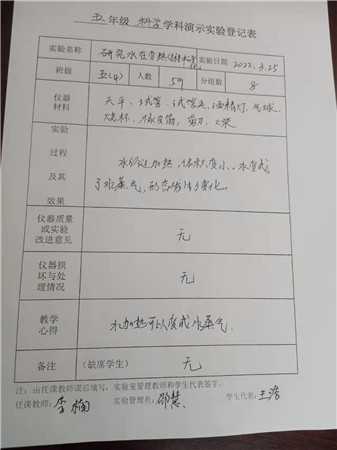 五年级 科学学科演示实验登记表
实验名称 研究水在变热过程中 实验日期 2022.3.25
班级 五(4) 人数 59 分组数 8
仪器材料 天平、试管、试管夹、酒精灯、气球、
烧杯、橡皮筋、剪刀、火柴
实验过程及其效果 水经过加热,体积变小,水变成
了水蒸气,形态发生了变化。
仪器质量或实验改进意见 无
仪器损坏与处理情况 无
教学心得 水加热可以变成水蒸气。
备注 (缺席学生) 无
注:由任课教师课后填写,实验室管理教师和学生代表签字。
任课教师:李楠 实验管理员:邵慧 学生代表:王浩